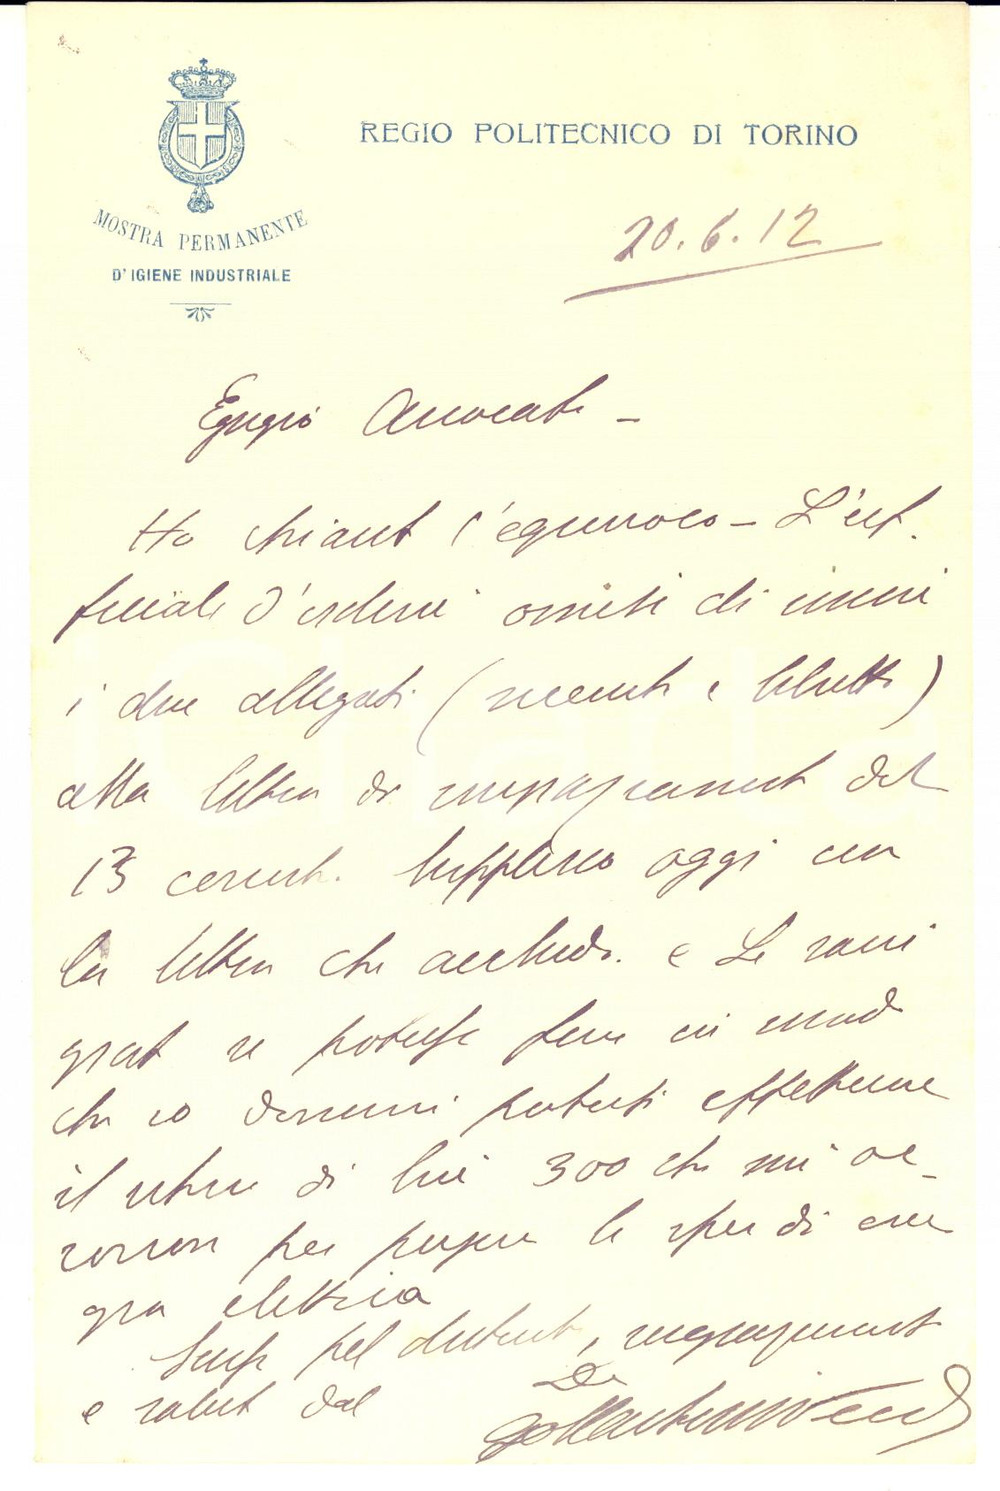 REGIO POLITECNICO DI TORINO
MOSTRA PERMANENTE
D'IGIENE INDUSTRIALE
20.6.12
Egregio Avvocato –
Ho chiarito l'equivoco – L'uf.
ficiale d'ordine omise di unire
i due allegati ( e libretto)
alla lettera di ringraziamento del
13 corrente. Supplisco oggi con
la lettera che accludo. e Le sarei
grato se potesse fare in modo
che io domani potessi effettuare
il ritiro di lire 300 che mi oc-
corrono per pagare le spese di ener
gia elettrica
Scusi pel disturbo, ringraziamenti
e saluti dal
Dr